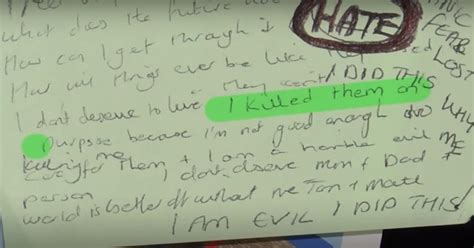 what does the future
HATE
How can I get through it
FEAR
How will things ever be like
LOST
they can't
I DID THIS
I don't deserve to live
I killed them on
purpose because I'm not good enough
WHY
killing me
ME
care for them + I am a horrible evil
person
I don't deserve mum + Dad +
world is better off without me Tom + Matt
I AM EVIL I DID THIS